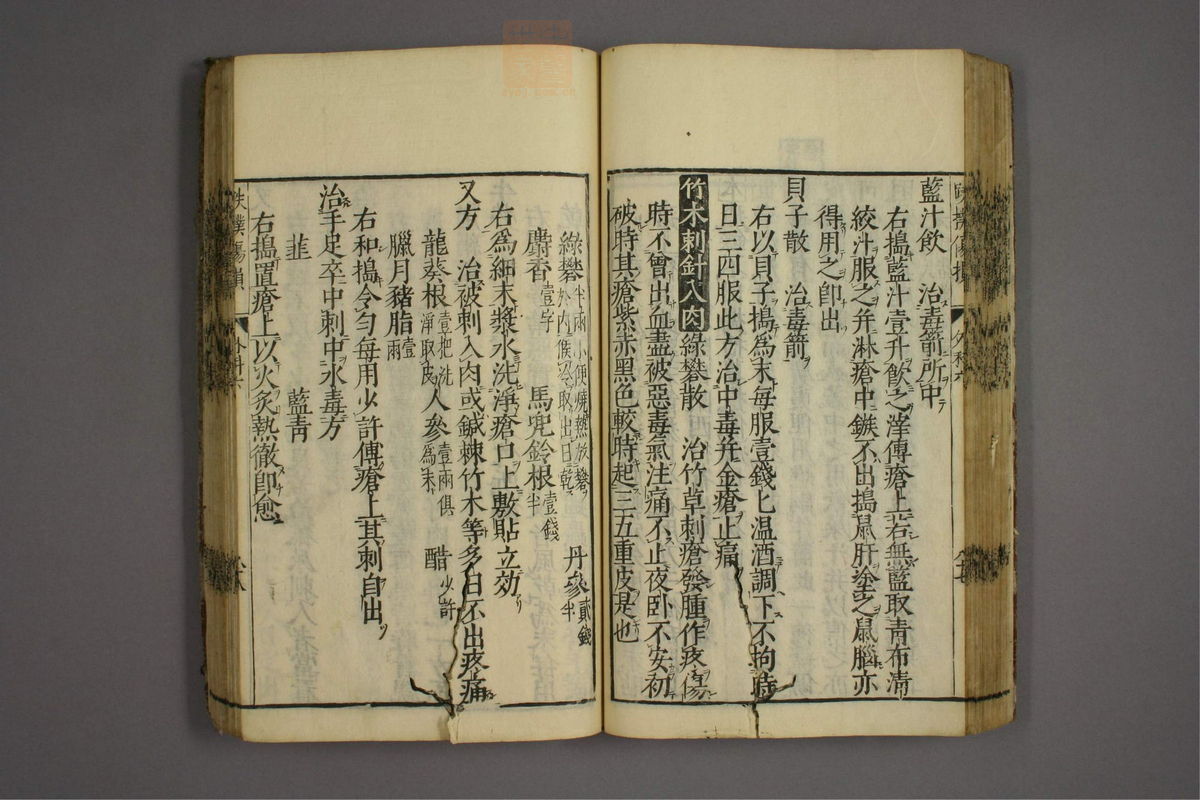 藍汁飲　治毒箭所中
右搗藍汁壹升飲之滓傅瘡上若無藍取青布漬
絞汁服之并淋瘡中鏃不出搗鼠肝塗之鼠腦亦
得用之卽出
貝子散　治毒箭
右以貝子搗為末每服壹錢匕温酒調下不拘時
日三四服此方治中毒并金瘡止痛
竹木刺針入肉　綠礬散　治竹草刺瘡發腫作疼傷
時不曾出血盡被惡毒氣注痛不止夜卧不安初
破時其瘡紫赤黑色較時起三五重皮是也
綠礬半兩小便燒熱放礬於內候冷取出日乾　丹參貳錢半
麝香壹字　馬兜鈴根壹錢半
右為細末漿水洗淨瘡口上敷貼立効
又方　治被刺入肉或鍼棘竹木等多日不出疼痛
龍葵根壹把洗淨取皮　人參壹兩俱為末　醋少許
臘月豬脂壹兩
右和搗令勻每用少許傅瘡上其刺自出
治手足卒中刺中水毒方
韮　藍青
右搗置瘡上以火炙熱徹卽愈